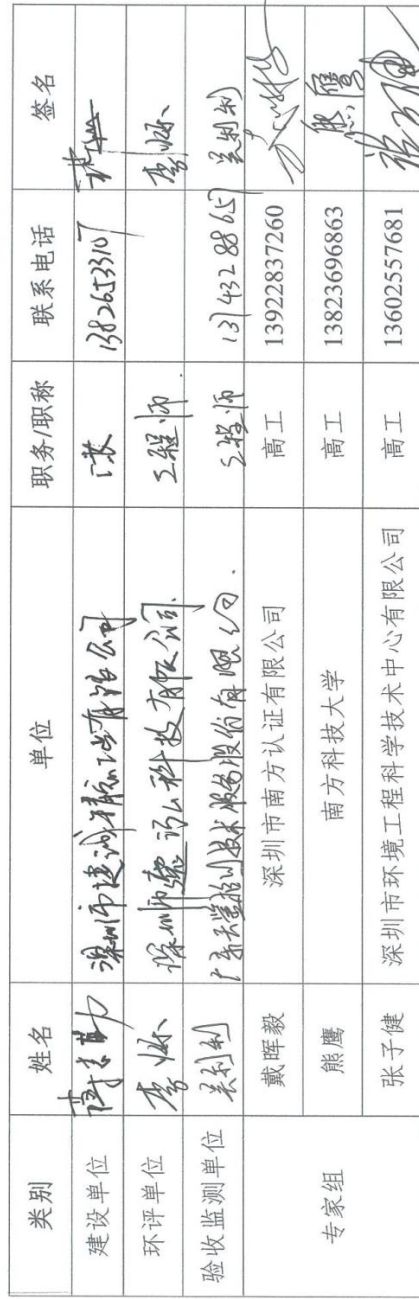 类别 姓名 单位 职务/职称 联系电话 签名
建设单位 深圳市 有限公司 13826533107
环评单位 李 深圳市 科技有限公司 工程师 李
验收监测单位 利利 广东 检测技术股份有限公司 工程师 13143288657 利利
专家组 戴晖毅 深圳市南方认证有限公司 高工 13922837260
熊鹰 南方科技大学 高工 13823696863 熊鹰
张子健 深圳市环境工程科学技术中心有限公司 高工 13602557681